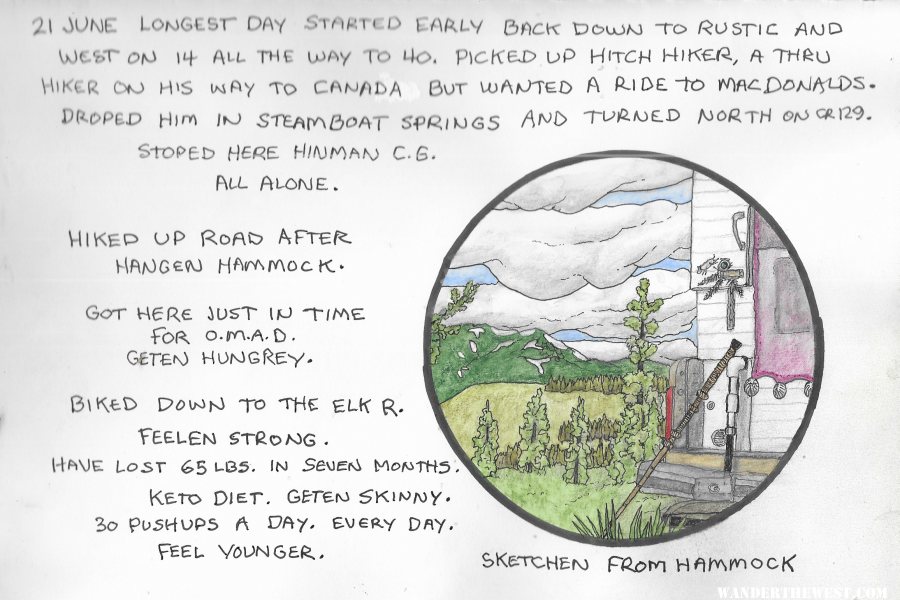 21 JUNE LONGEST DAY STARTED EARLY BACK DOWN TO RUSTIC AND
WEST ON 14 ALL THE WAY TO 40. PICKED UP HITCH HIKER, A THRU
HIKER ON HIS WAY TO CANADA BUT WANTED A RIDE TO MACDONALDS.
DROPED HIM IN STEAMBOAT SPRINGS AND TURNED NORTH ON CR129.
STOPED HERE HINMAN C.G.
ALL ALONE.
HIKED UP ROAD AFTER
HANGEN HAMMOCK.
GOT HERE JUST IN TIME
FOR O.M.A.D.
GETEN HUNGREY.
BIKED DOWN TO THE ELK R.
FEELEN STRONG.
HAVE LOST 65 LBS. IN SEVEN MONTHS.
KETO DIET. GETEN SKINNY.
30 PUSHUPS A DAY. EVERY DAY.
FEEL YOUNGER.
SKETCHEN FROM HAMMOCK
WANDERTHEWEST.COM